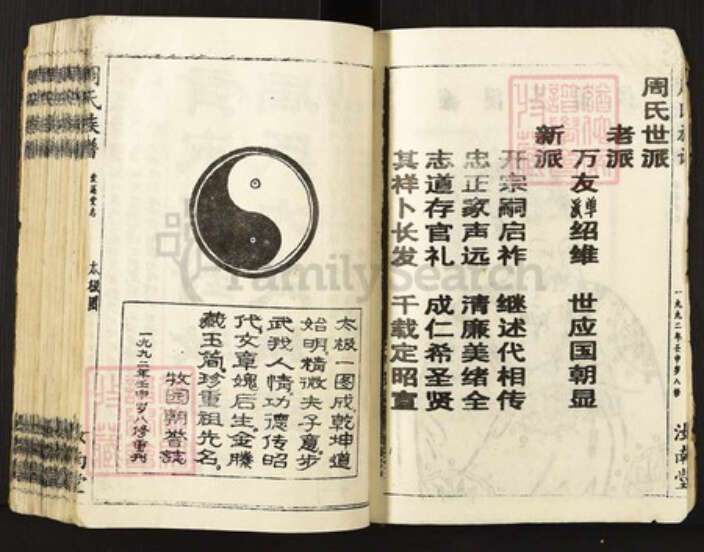 周氏世派
老派
万友单绍维 世应国朝显
新派
开宗嗣启祚 继述代相传
忠正家声远 清廉美绪全
志道存官礼 成仁希圣贤
其祥卜长发 千载定昭宣
一九九二年壬申岁八修
汝南堂
太极一图成乾坤道
始明精微夫子意步
武我人情功德传昭
代文章媿后生金縢
藏玉简珍重祖先名
牧园朝誉誌
一九九二年壬申岁八修重刊
周氏族谱
太极图
FamilySearch